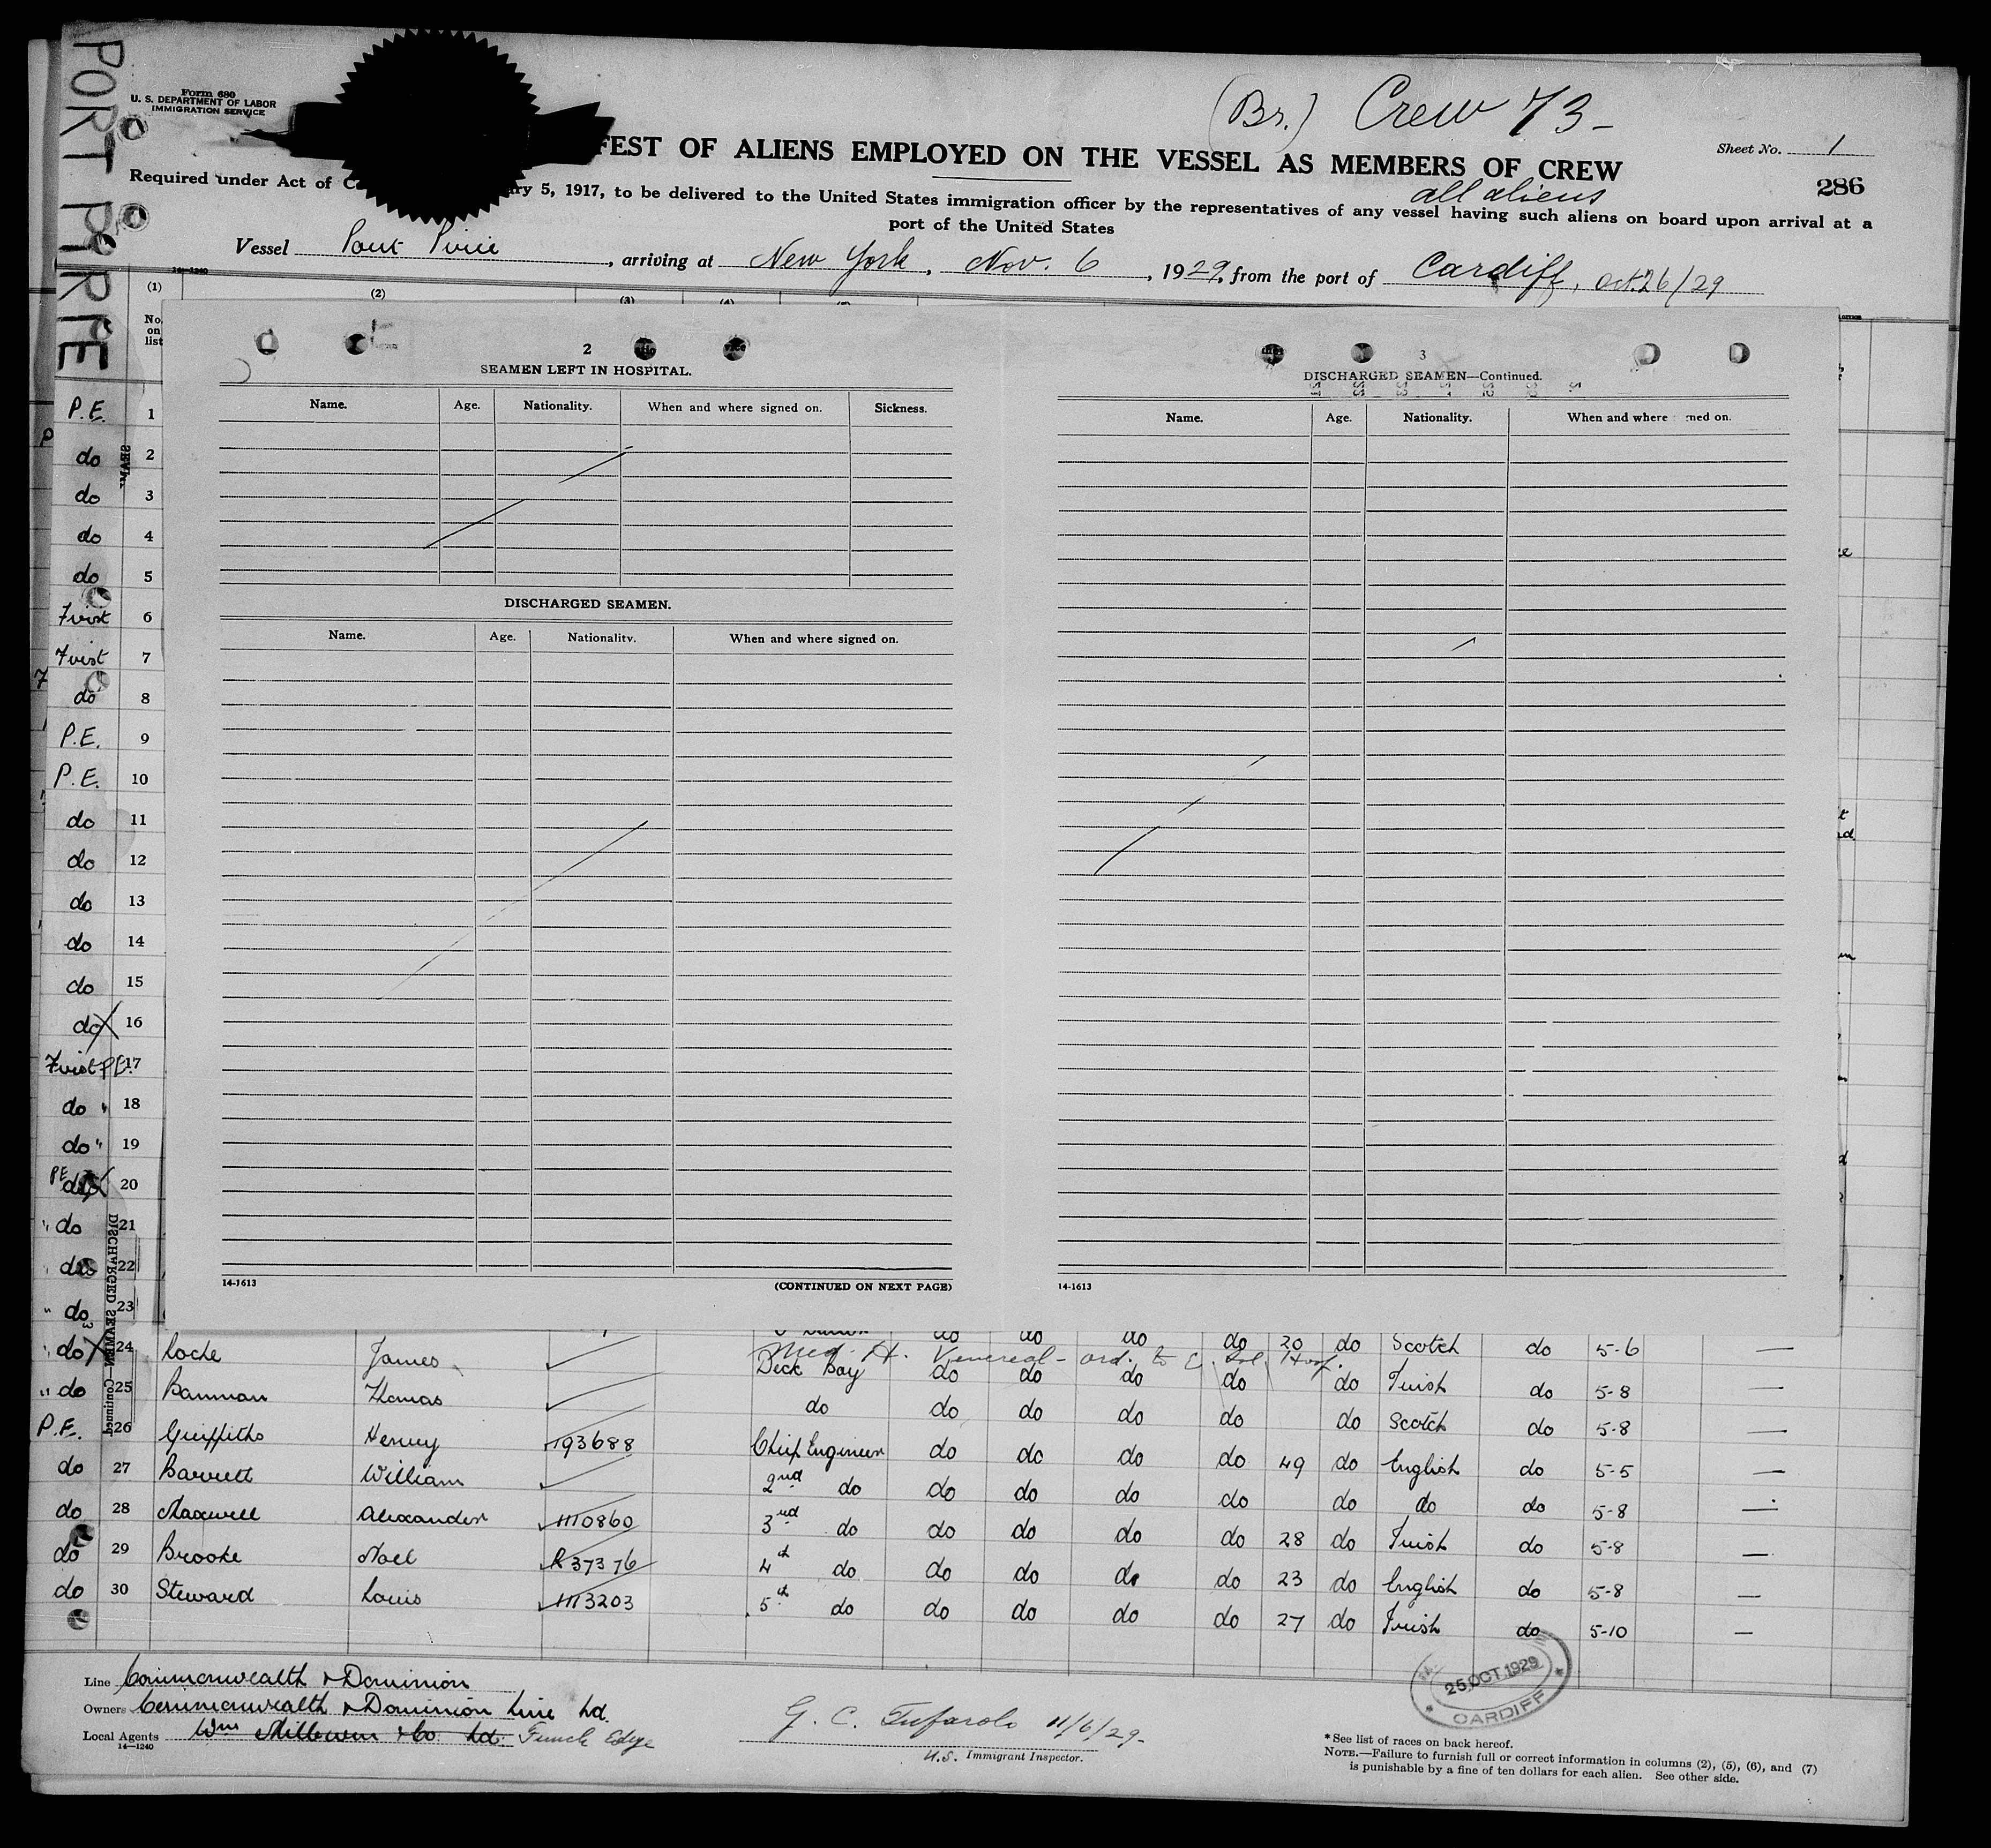 PORT PIRIE
Form 680
U. S. DEPARTMENT OF LABOR
IMMIGRATION SERVICE
(Br.) Crew 73-
FEST OF ALIENS EMPLOYED ON THE VESSEL AS MEMBERS OF CREW
Sheet No. 1
all aliens
286
Required under Act of C ry 5, 1917, to be delivered to the United States immigration officer by the representatives of any vessel having such aliens on board upon arrival at a
port of the United States
Vessel Port Pirie, arriving at New York, Nov. 6, 1929, from the port of Cardiff, Oct. 26/29
14-1240
(1) (2) (3) (4)
No. on list
2
SEAMEN LEFT IN HOSPITAL.
Name. Age. Nationality. When and where signed on. Sickness.
DISCHARGED SEAMEN.
Name. Age. Nationality. When and where signed on.
14-1613 (CONTINUED ON NEXT PAGE)
3
DISCHARGED SEAMEN—Continued.
Name. Age. Nationality. When and where ned on.
14-1613
P.E. 1
do 2
do 3
do 4
do 5
First 6
First 7
do 8
P.E. 9
P.E. 10
do 11
do 12
do 13
do 14
do 15
do X 16
First P.E. 17
do " 18
do " 19
P.E. do X 20
" do 21
do 22
" do 23
DISCHARGED SEAMEN—Continued
do do do do 20 do Scotch do 5-6 —
Med. H. Venereal - ord. to
" do X 24 Roche James Deck Boy do do do do do Irish do 5-8 —
" do 25 Bannan Thomas do do do do do do Scotch do 5-8 —
P.E. 26 Griffiths Henry 193688 Chief Engineer do do do do 49 do English do 5-5 —
do 27 Barrett William 2nd do do do do do do do do 5-8 —
do 28 Maxwell Alexander 1110860 3rd do do do do do 28 do Irish do 5-8 —
do 29 Brooke Noel R37376 4th do do do do do 23 do English do 5-8 —
do 30 Steward Louis 1113203 5th do do do do do 27 do Irish do 5-10 —
Line Commonwealth & Dominion
Owners Commonwealth & Dominion Line Ld.
Local Agents Wm Milburn & Co. Ld. Funch Edye
14—1240
G. C. Tufarolo 11/6/29-
U.S. Immigrant Inspector.
25 OCT 1929
CARDIFF
* See list of races on back hereof.
NOTE.—Failure to furnish full or correct information in columns (2), (5), (6), and (7)
is punishable by a fine of ten dollars for each alien. See other side.